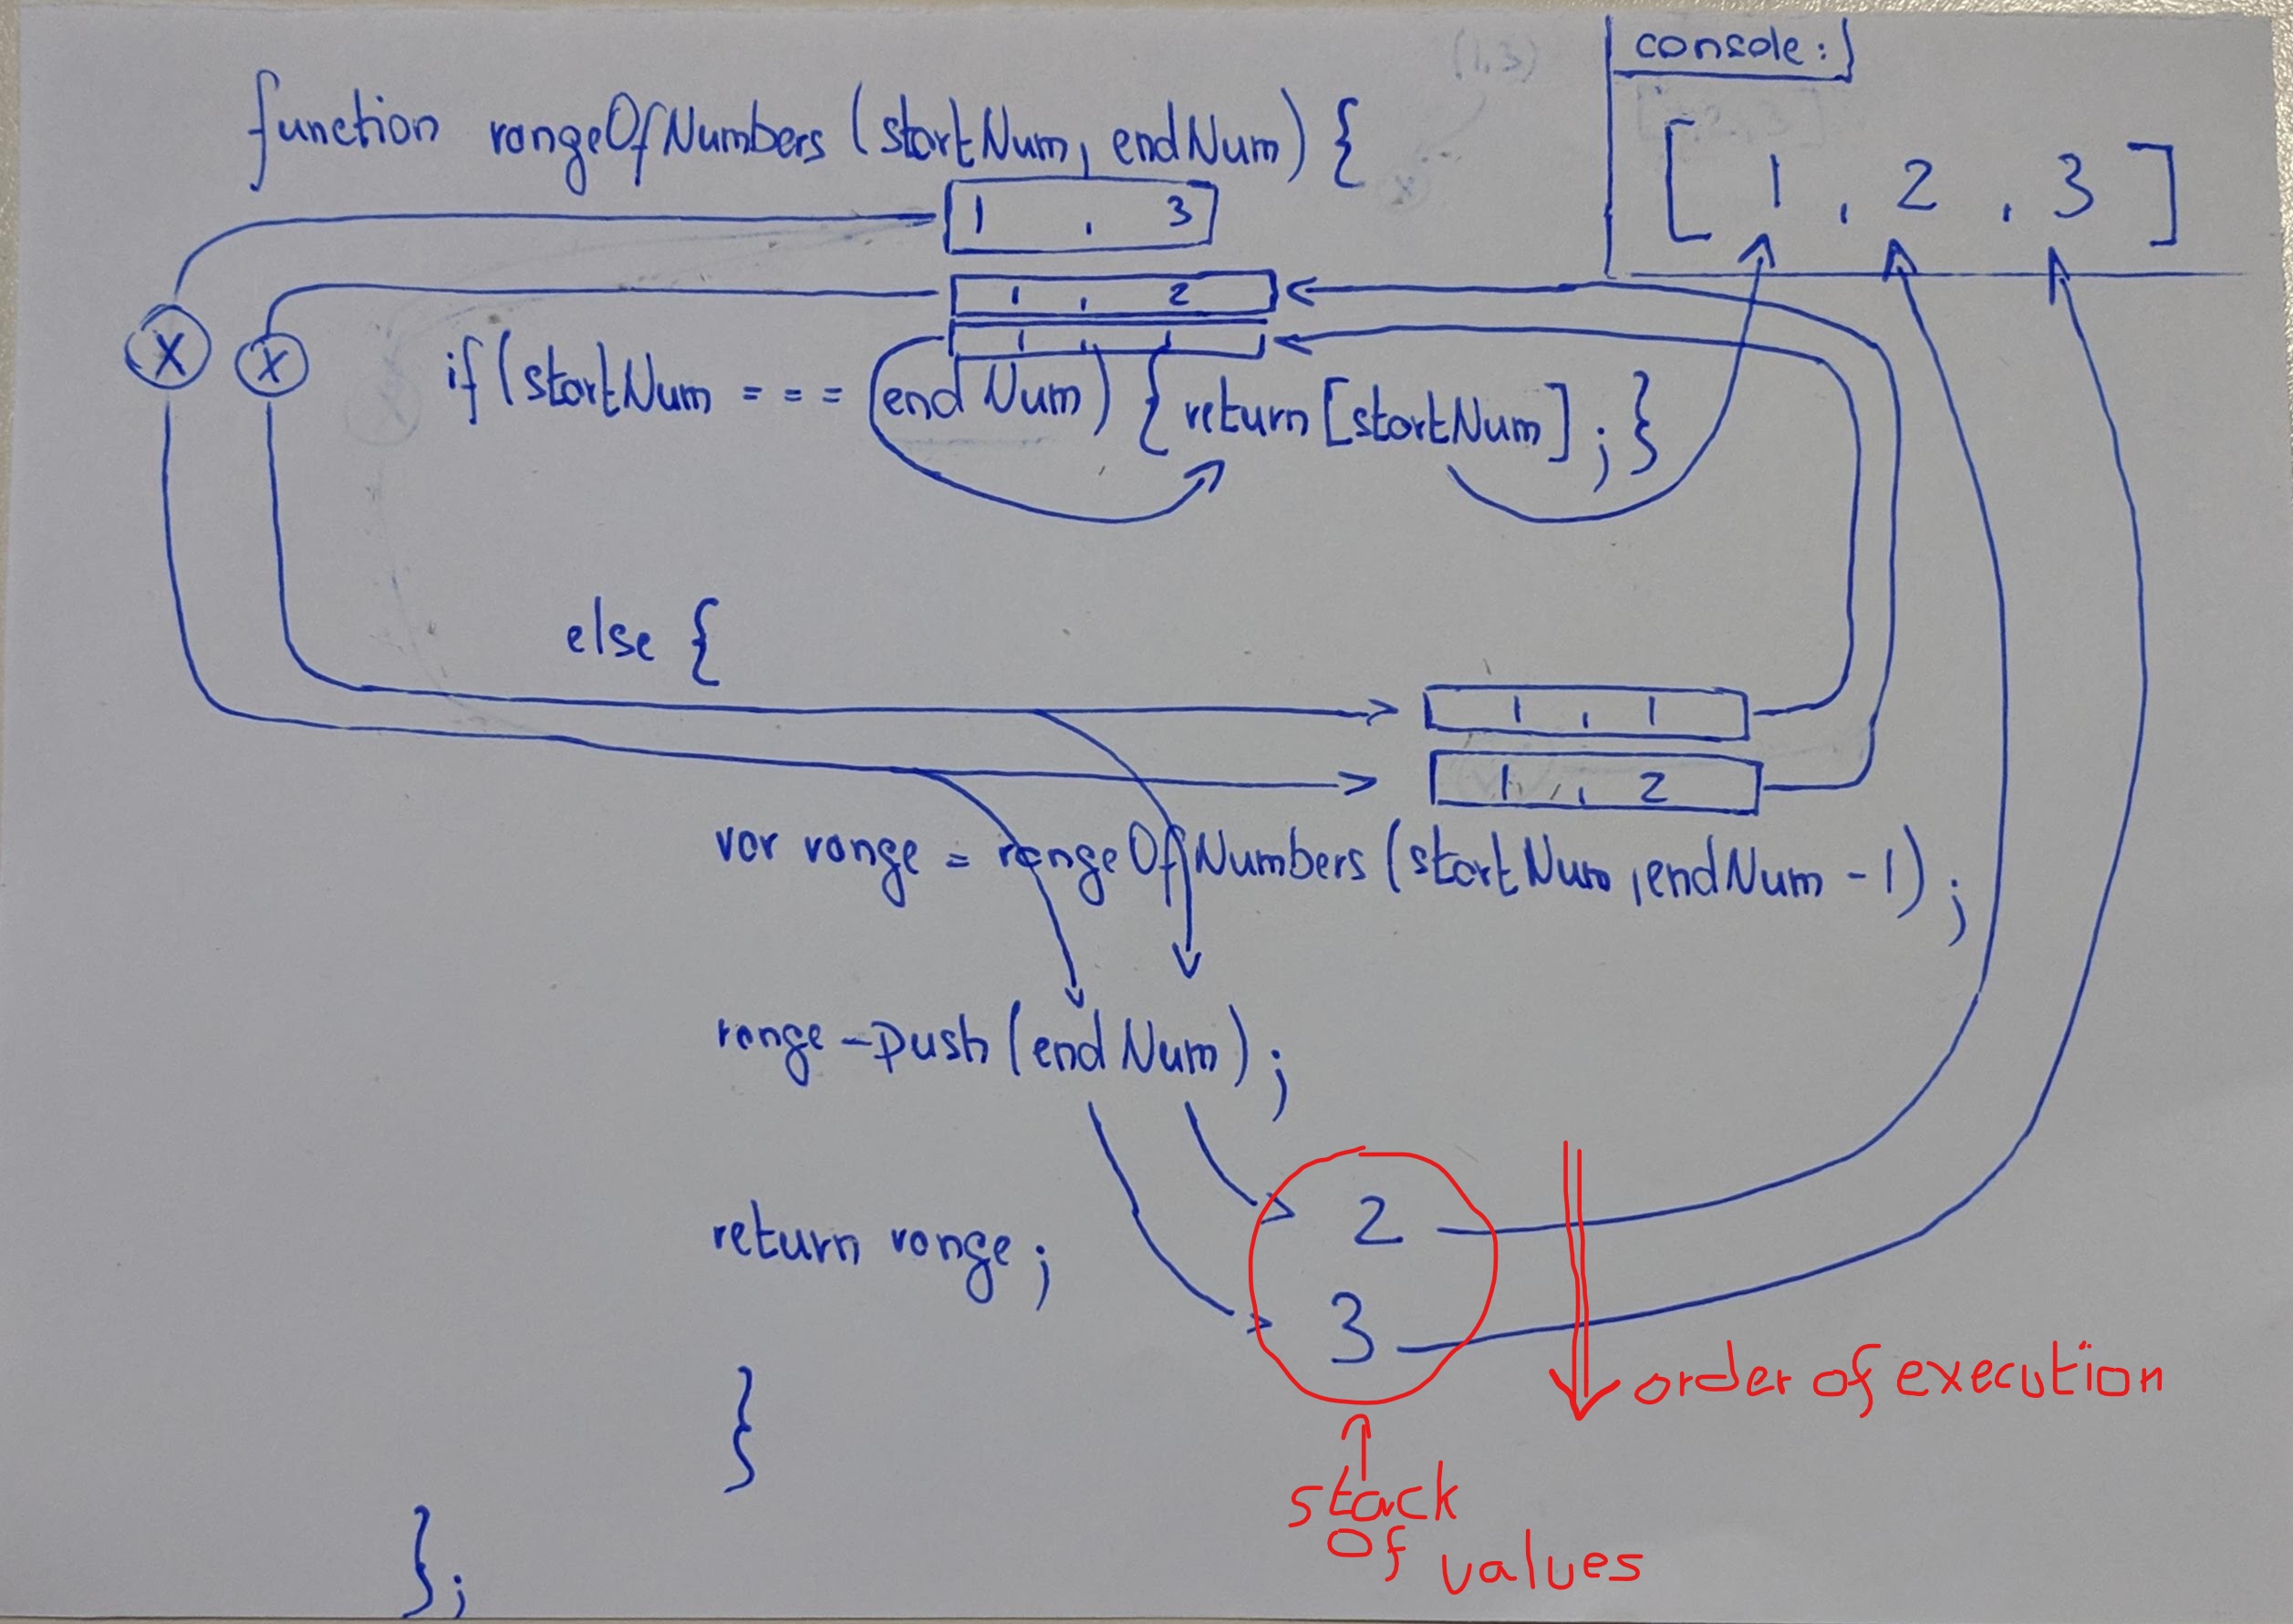 (1,3)
console:
function rangeOfNumbers (startNum, endNum) {
[ 1 , 2 , 3 ]
1 , 3
1 , 2
1 , 1
x x
if (startNum === endNum) { return [startNum] ; }
else {
1 , 1
1 , 2
var range = rangeOfNumbers (startNum , endNum - 1) ;
range-push (endNum) ;
2
return range ;
3
order of execution
}
stack
of
values
} ;